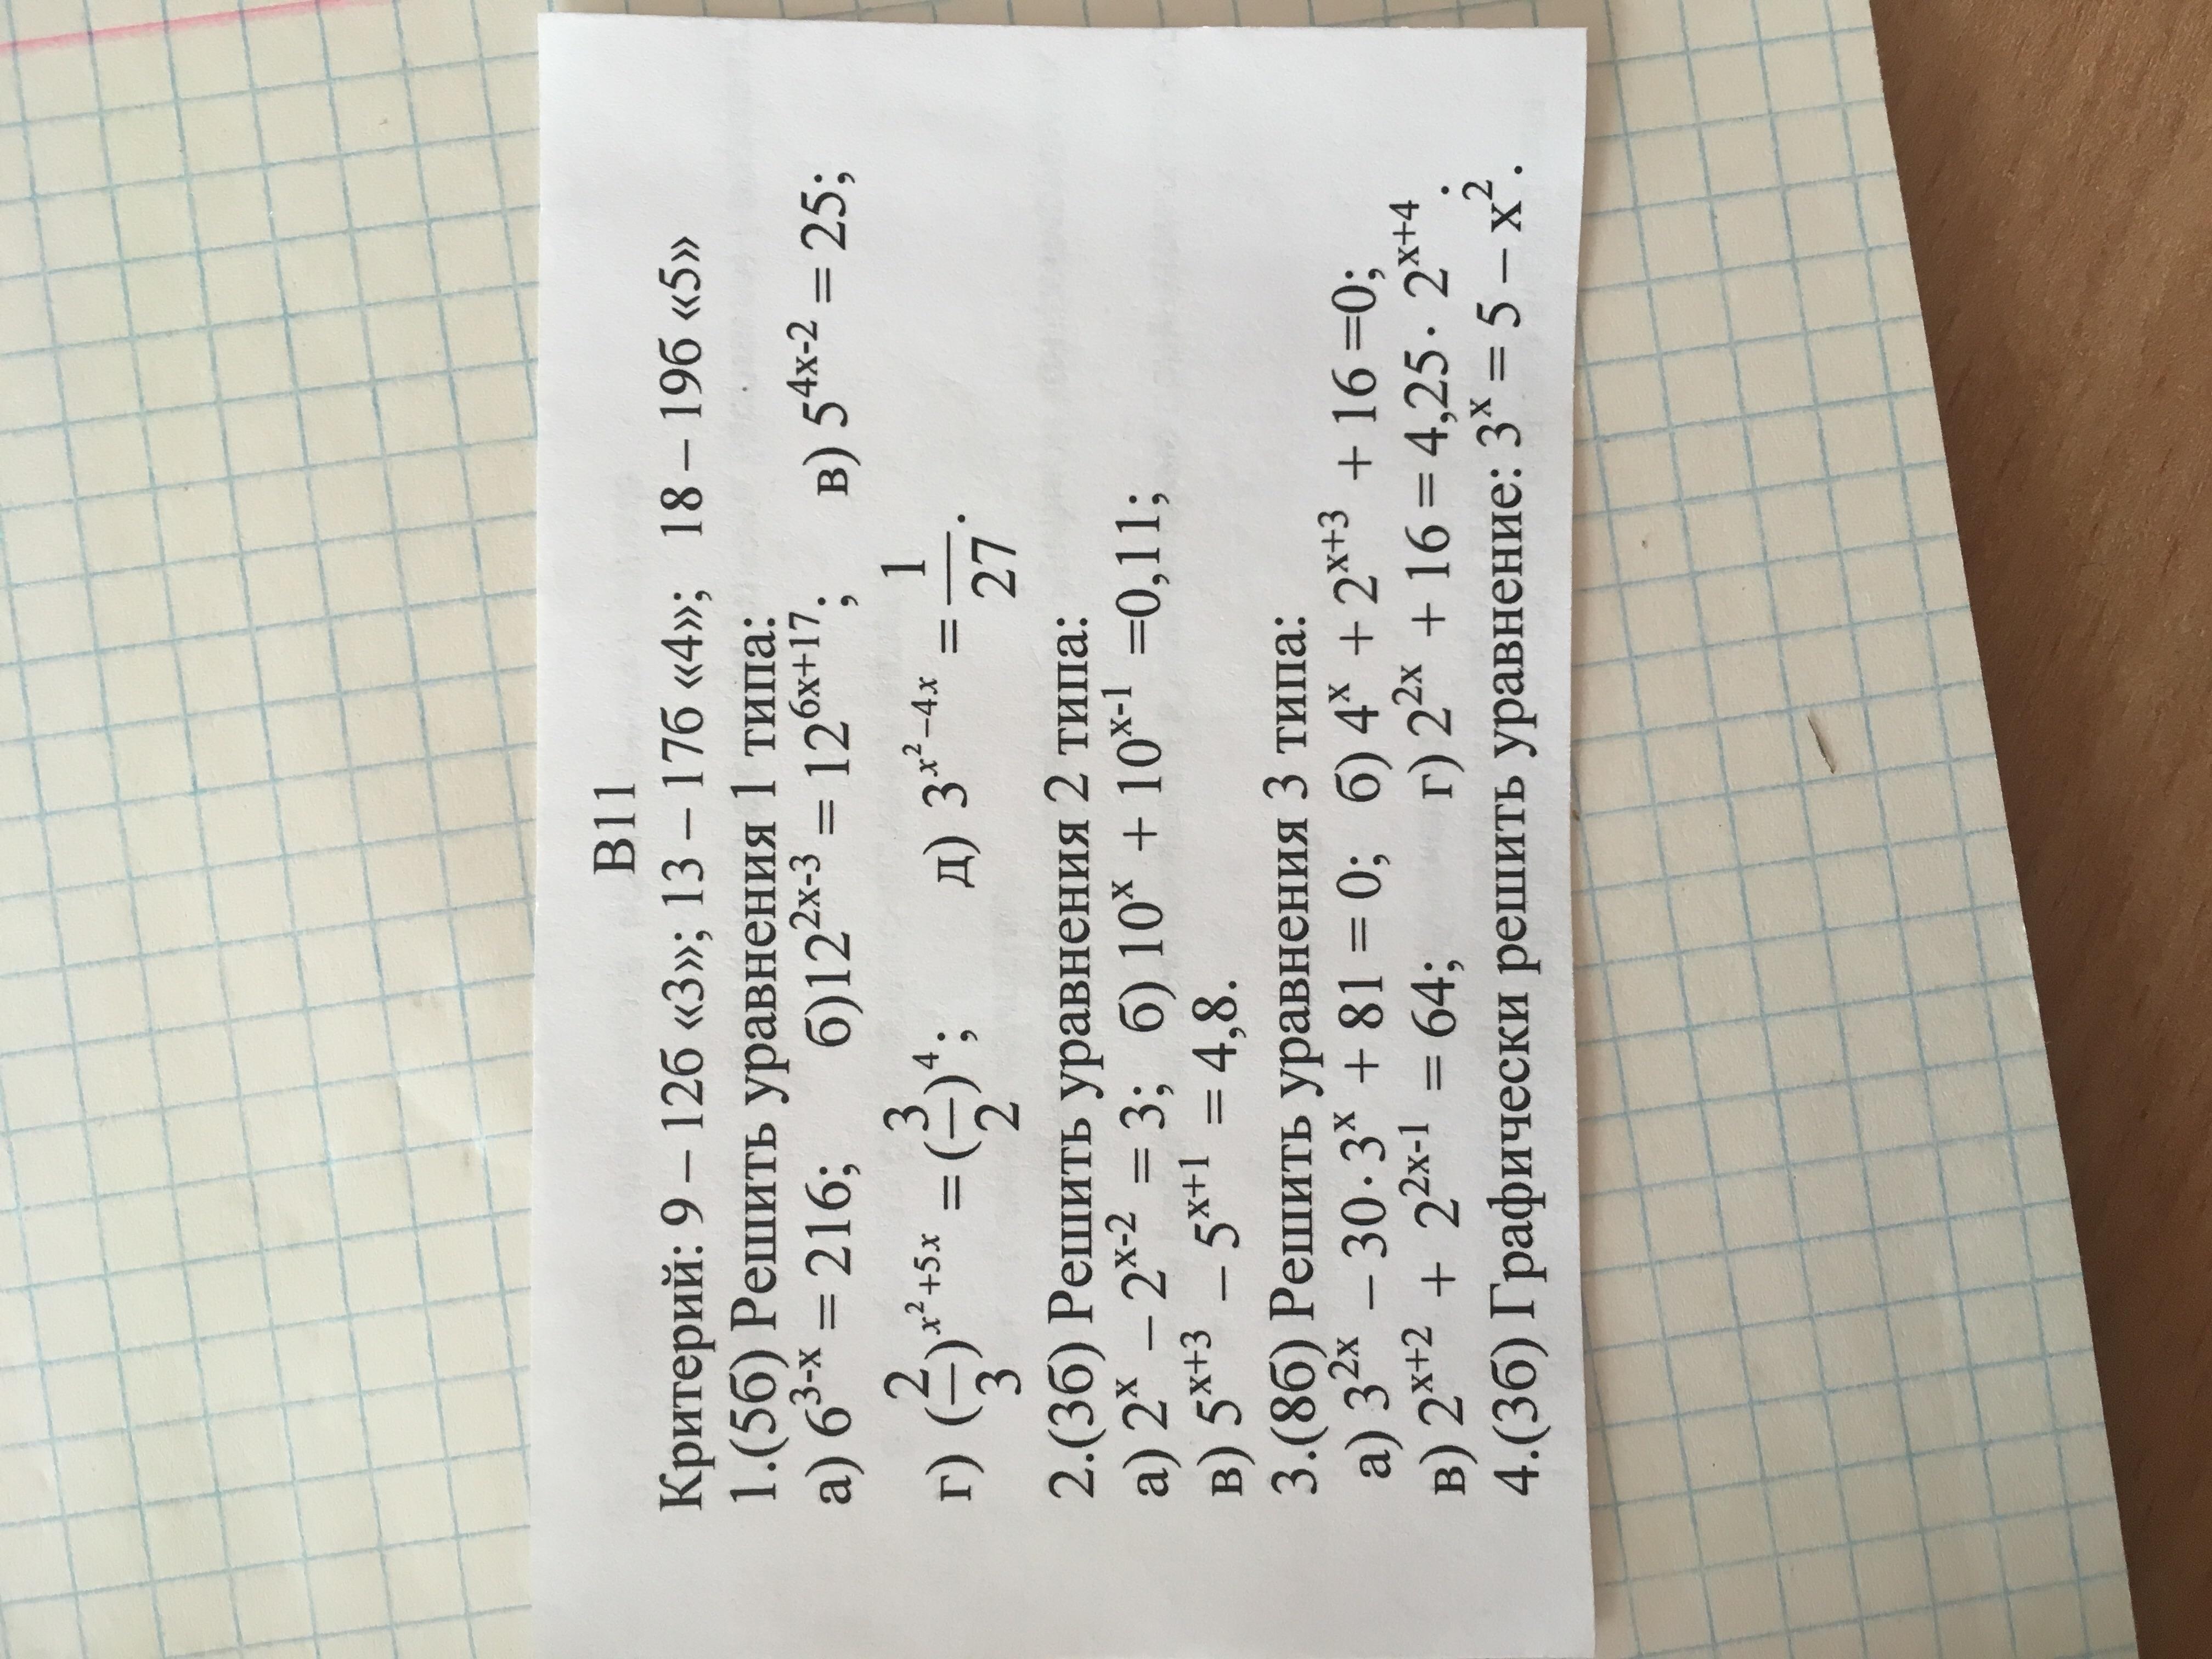 В11
Критерий: 9 – 12б «3»; 13 – 17б «4»; 18 – 19б «5»
1.(5б) Решить уравнения 1 типа:
а) 6^{3-x} = 216; б)12^{2x-3} = 12^{6x+17}; в) 5^{4x-2} = 25;
г) (\frac{2}{3})^{x^2+5x} = (\frac{3}{2})^4; д) 3^{x^2-4x} = \frac{1}{27}.
2.(3б) Решить уравнения 2 типа:
а) 2^x – 2^{x-2} = 3; б) 10^x + 10^{x-1} =0,11;
в) 5^{x+3} – 5^{x+1} = 4,8.
3.(8б) Решить уравнения 3 типа:
а) 3^{2x} – 30·3^x + 81 = 0; б) 4^x + 2^{x+3} + 16 =0;
в) 2^{x+2} + 2^{2x-1} = 64; г) 2^{2x} + 16 = 4,25· 2^{x+4}.
4.(3б) Графически решить уравнение: 3^x = 5 – x^2.